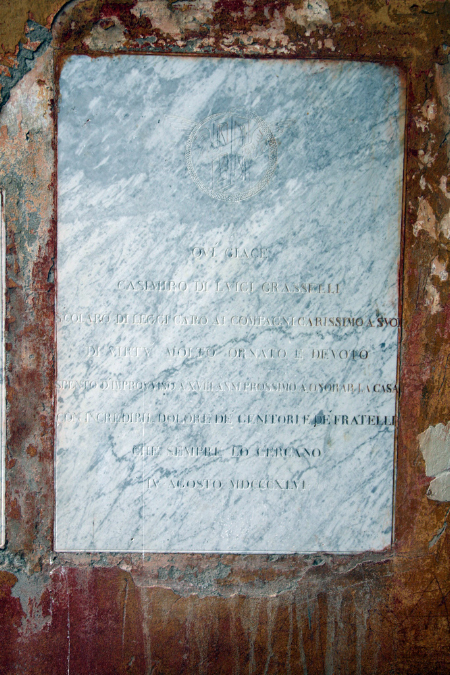 QVI GIACE
CASIMIRO DI LUIGI GRASSELLI
SCOLARO DI LEGGI CARO AI COMPAGNI CARISSIMO A SVOI
DI VIRTV MOLTO ORNATO E DEVOTO
SPENTO D'IMPROVVISO A XVIII ANNI PROSSIMO A ONORAR LA CASA
CON INCREDIBIL DOLORE DE GENITORI E DE FRATELLI
CHE SEMPRE LO CERCANO
IV AGOSTO MDCCCXLVI